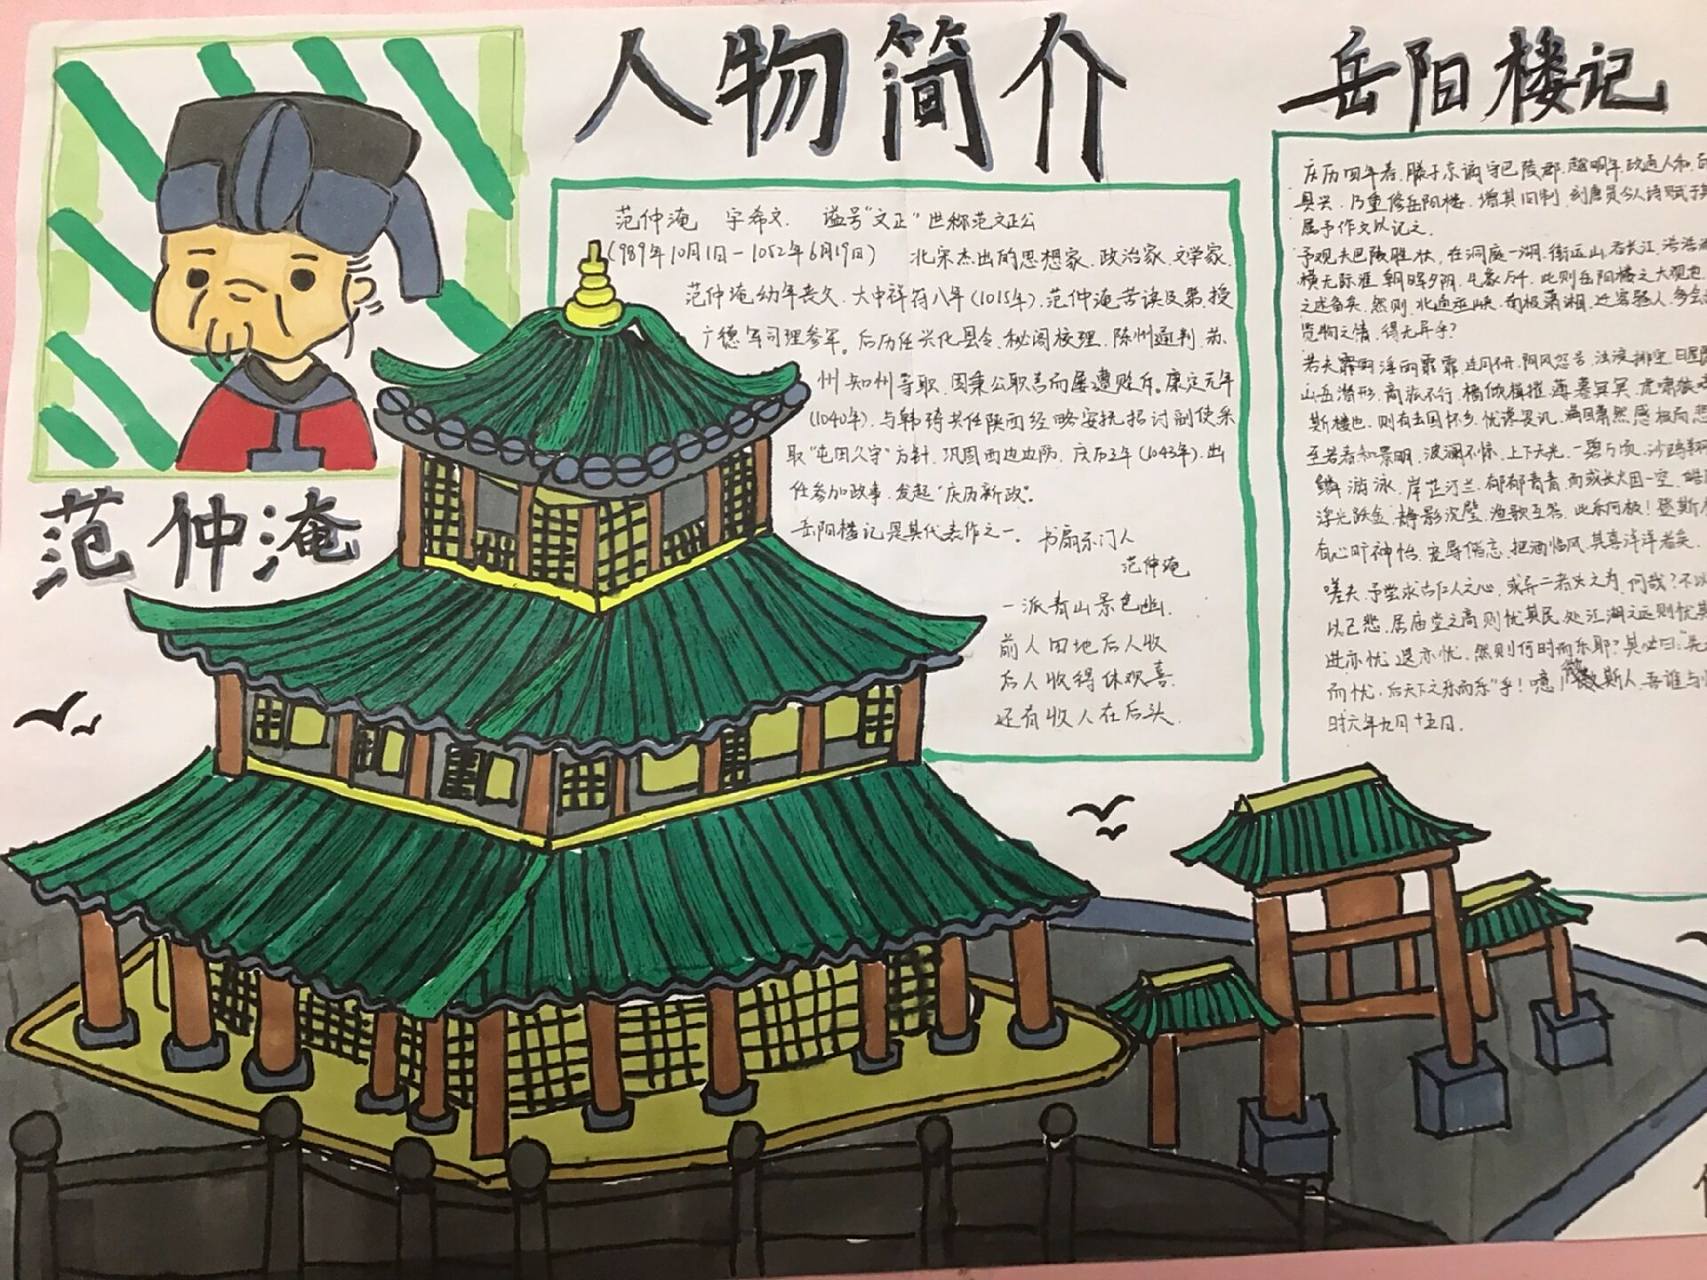 人物简介
岳阳楼记
范仲淹
范仲淹 字希文. 谥号“文正”世称范文正公
(989年10月1日-1052年6月19日) 北宋杰出的思想家.政治家.文学家.
范仲淹幼年丧父.大中祥符八年(1015年).范仲淹苦读及第.授
广德军司理参军。后历任兴化县令.秘阁校理.陈州通判.苏
州知州等职.因秉公职言而屡遭贬斥。康定元年
(1040年).与韩琦共任陕西经略安抚招讨副使采
取“屯田久守”方针.巩固西边边防.庆历三年(1043年).出
任参加政事.发起“庆历新政”。
岳阳楼记是其代表作之一。书扇示门人
范仲淹
一派青山景色幽.
前人田地后人收
后人收得休欢喜.
还有收人在后头.
庆历四年春.滕子京谪守巴陵郡.越明年.政通人和.百
具兴.乃重修岳阳楼.增其旧制.刻唐贤今人诗赋于其
属予作文以记之.
予观夫巴陵胜状.在洞庭一湖.衔远山.吞长江.浩浩汤
横无际涯.朝晖夕阴.气象万千.此则岳阳楼之大观也.
之述备矣.然则.北通巫峡.南极潇湘.迁客骚人.多会
览物之情.得无异乎?
若夫霪雨霏霏.连月不开.阴风怒号.浊浪排空.日星隐
山岳潜形.商旅不行.樯倾楫摧.薄暮冥冥.虎啸猿啼
斯楼也.则有去国怀乡.忧谗畏讥.满目萧然.感极而悲
至若春和景明.波澜不惊.上下天光.一碧万顷.沙鸥翔
鳞游泳.岸芷汀兰.郁郁青青.而或长烟一空.皓月
浮光跃金.静影沉璧.渔歌互答.此乐何极!登斯
有心旷神怡.宠辱偕忘.把酒临风.其喜洋洋者矣.
嗟夫.予尝求古仁人之心.或异二者之为.何哉?不以
以己悲.居庙堂之高则忧其民.处江湖之远则忧其
进亦忧.退亦忧.然则何时而乐耶?其必曰“先
而忧.后天下之乐而乐”乎!噫!微斯人.吾谁与
时六年九月十五日.